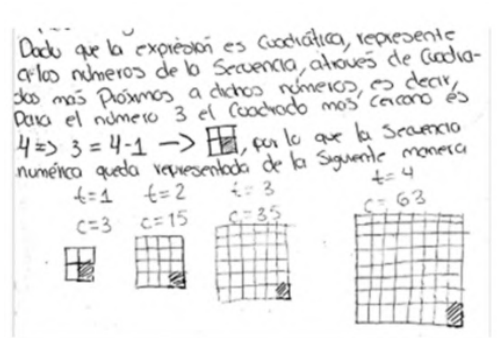 Dado que la expresión es Cuadrática, represente
a los números de la Secuencia, através de Cuadra-
dos más Próximos a dichos números, es decir,
Para el número 3 el Cuadrado más cercano es
4 => 3 = 4-1 -> , por lo que la Secuencia
numérica queda representada de la Siguiente manera
t=1 t=2 t=3 t=4
c=3 c=15 c=35 c=63